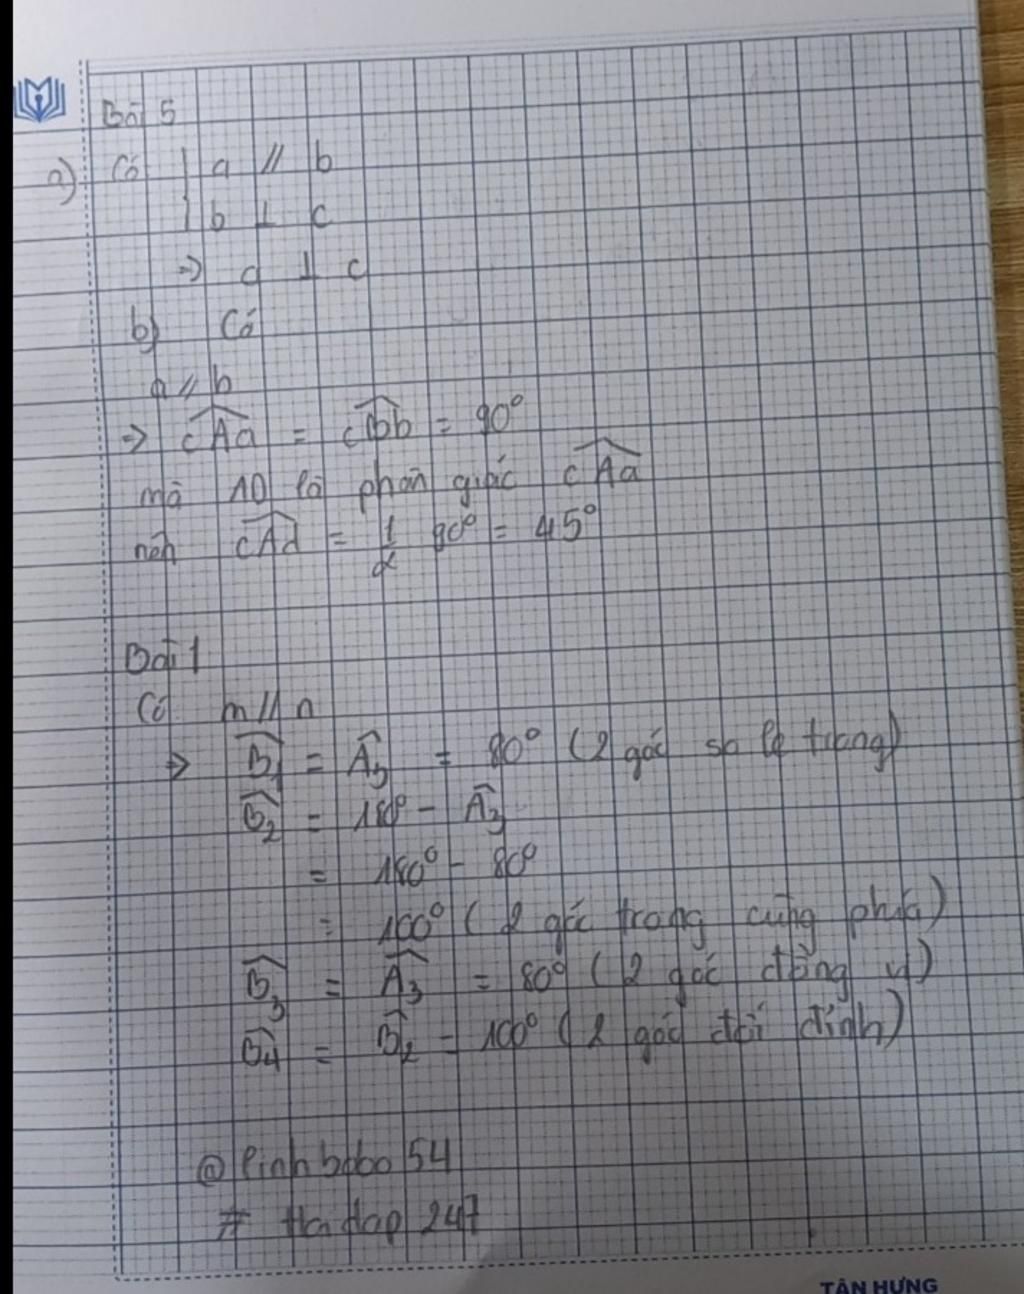 Bài 5
a) Có a // b
b ⊥ c
=> a ⊥ c
b) Có
a // b
=> cAa = cBb = 90°
mà AD là phân giác cAa
nên cAd = 1/2 90° = 45°
Bài 1
Có m // n
=> B1 = A3 = 80° (2 góc so le trong)
B2 = 180° - A3
= 180° - 80°
= 100° (2 góc trong cùng phía)
B3 = A3 = 80° (2 góc đồng vị)
B4 = B2 = 100° (2 góc đối đỉnh)
@linhbobo54
# HoiDap247
TÂN HƯNG